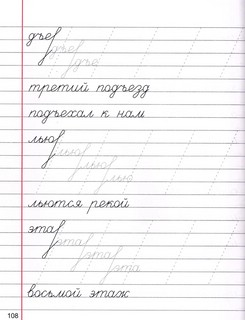 дъе дъе дъе
третий подъезд
подъехал к нам
лью лью лью лью
льются рекой
эта эта эта эта
восьмой этаж
108